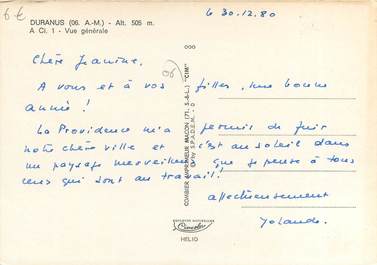 6 €
DURANUS (06. A.-M.) - Alt. 505 m.
A Ci. 1 - Vue générale
6 30.12.80
Chère Jeanine,
06
A vous et à vos filles, une bonne
année !
La Providence m'a permis de fuir
notre chère ville et c'est au soleil dans
un paysage merveilleux que je pense à tous
ceux qui sont au travail !
affectueusement
Yolande.
COMBIER IMPRIMEUR MACON (71. S.-&-L.) "CIM"
by S.P.A.D.E.M.
Cimcolor
HELIO